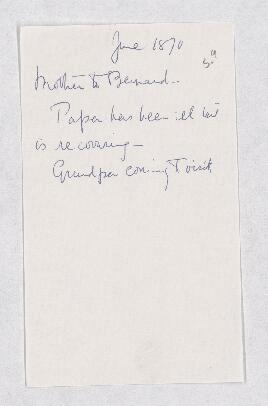 June 1870
Mother to Bernard..
Papa has been ill but
is recovering—
Grandpa coming to visit